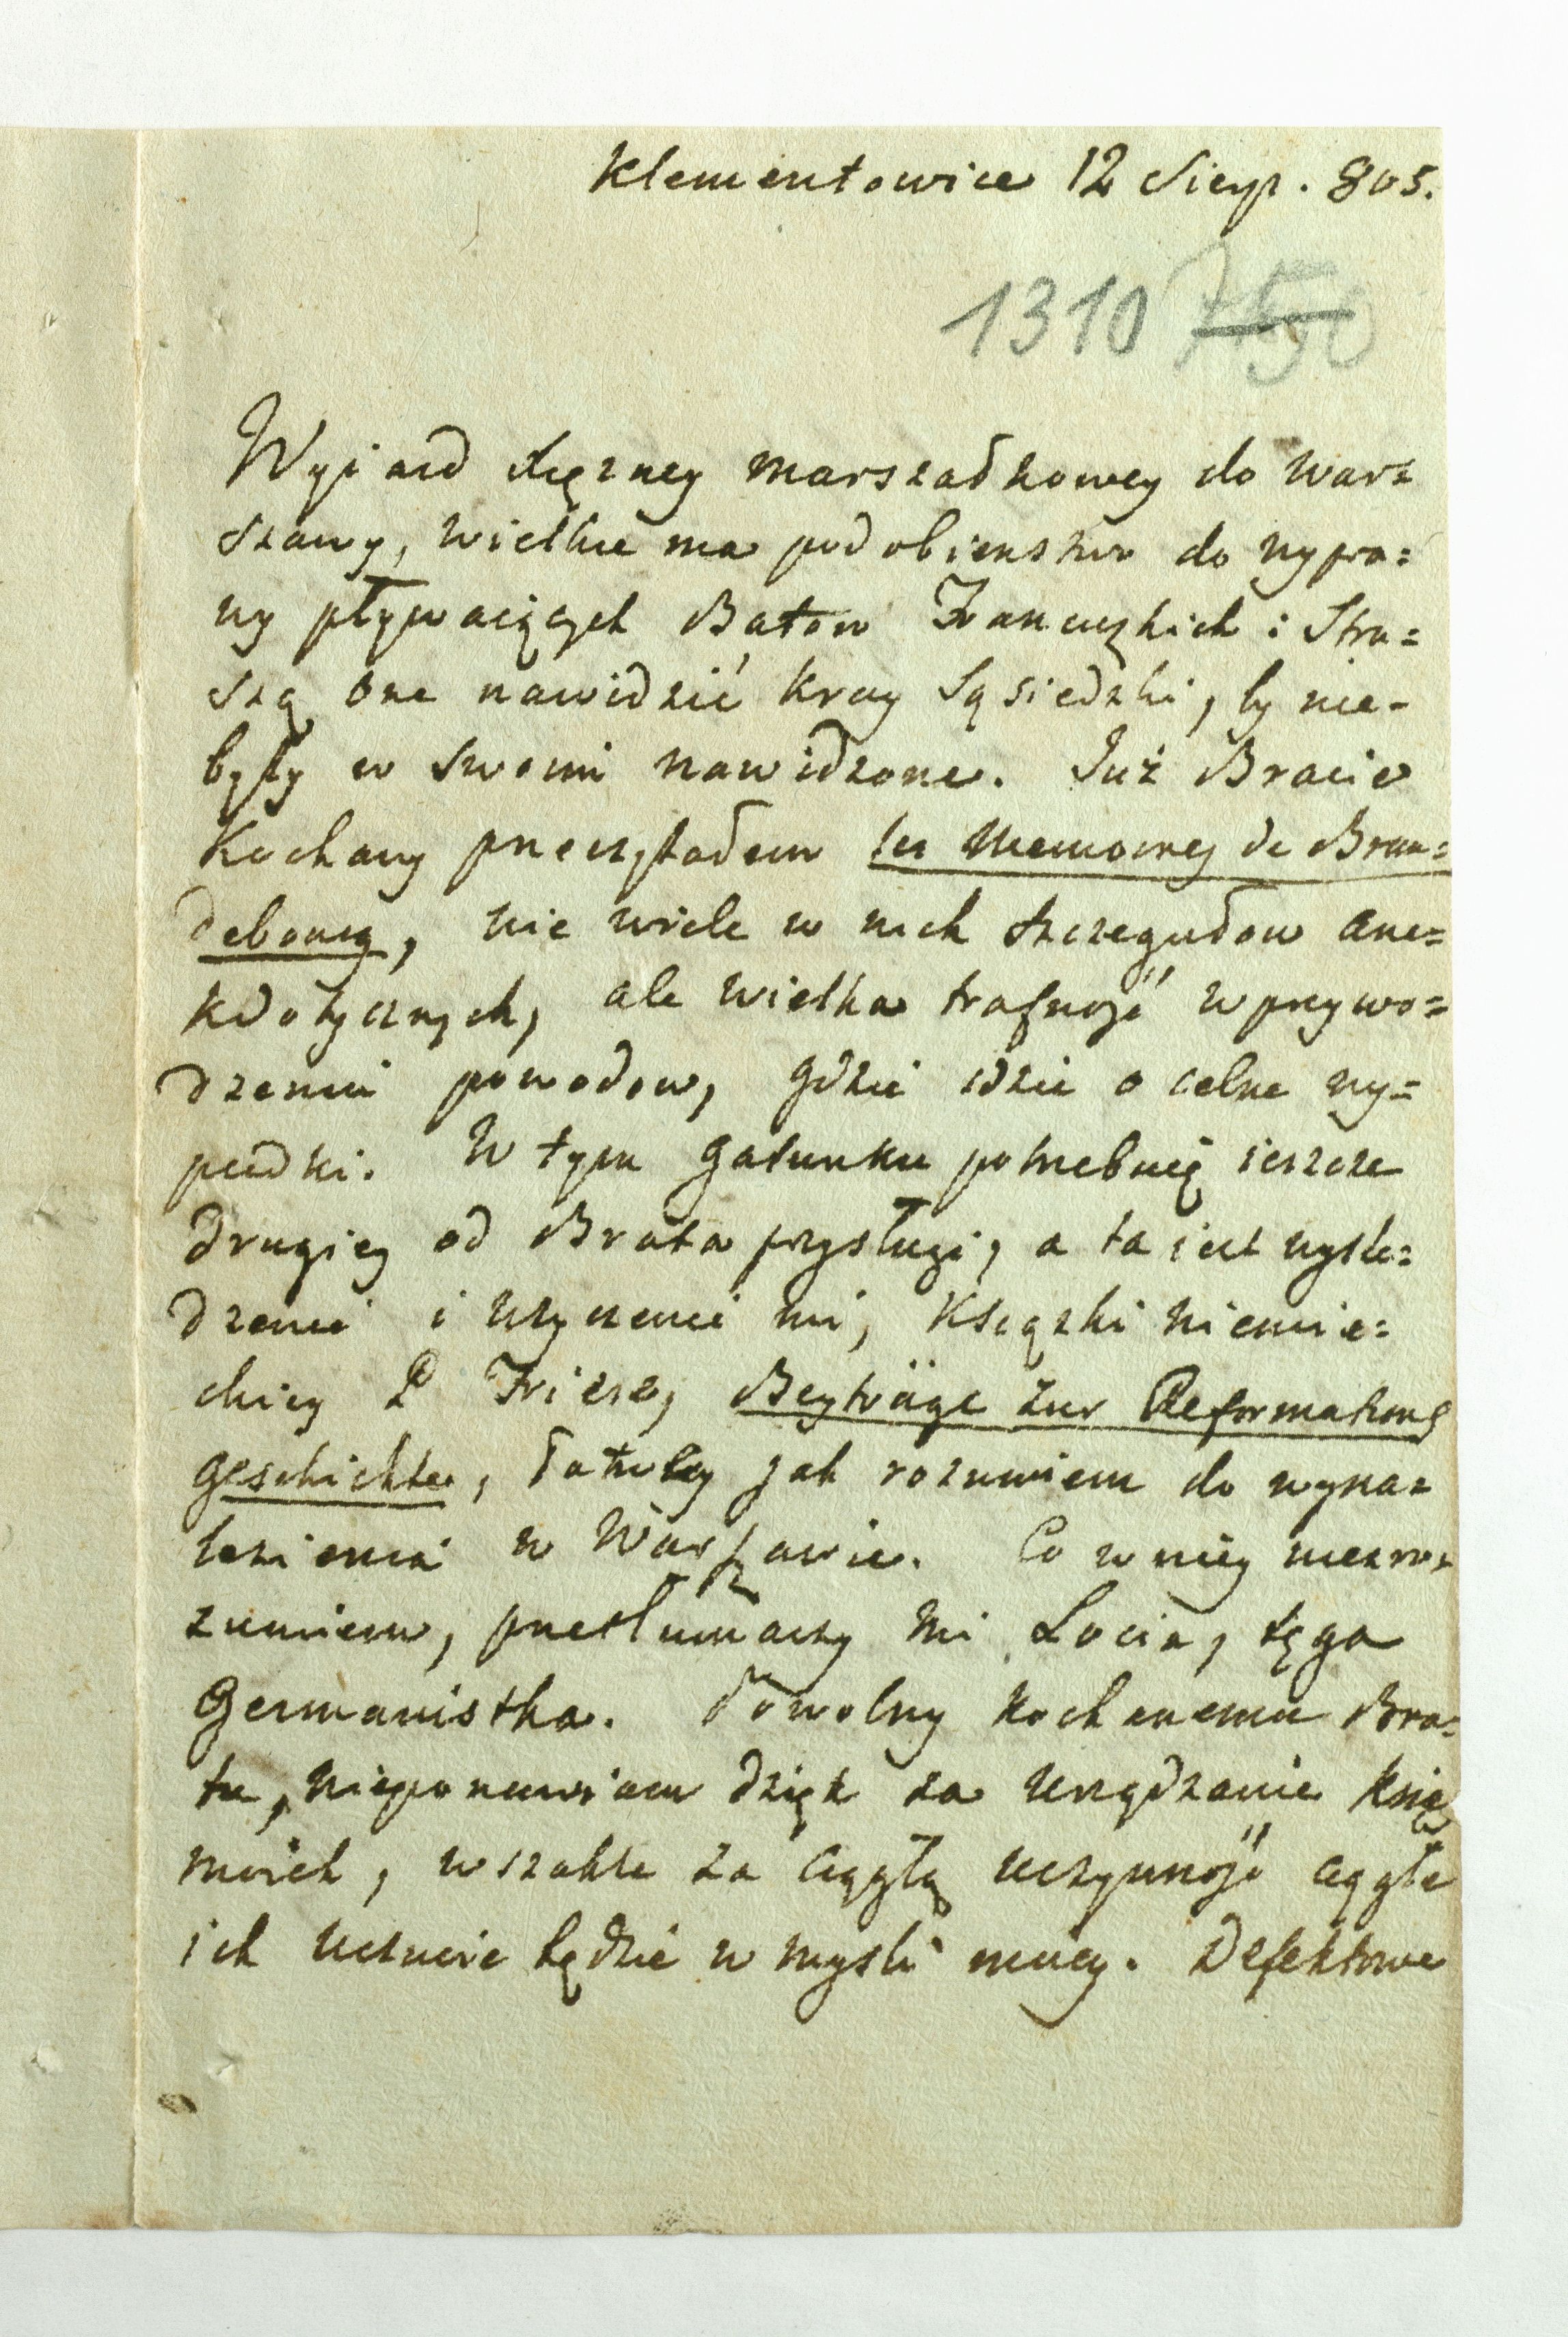 Klementowice 12 Sierp. 805.
1310
Wyiazd Xiężney marszałkowey do War=
szawy, wielkie ma podobienstwo do wypra=
wy pływaiących Batow Francuzkich: Stra=
szą one nawidzić kray Sąsiedzki, by nie-
były w swoim nawidzone. Już Bracie
Kochany przeczytałem les Memoires de Bran=
debourg, nie wiele w nich szczegułow ane=
kdotycznych, ale wielka trafność w przywo=
dzeniu powodow, gdzie idzie o celne wy=
padki. W tym gatunku potrzebuię ieszcze
drugiey od Brata przysługi, a ta iest wyśle=
dzenie i użyczenie mi, Ksiązki niemie=
ckiey P Friese, Beyträge zur Reformations
geschichte, łatwey jak rozumiem do wyna=
lezienia w Warszawie. Co w niey niezro=
zumiem, przetłumaczy mi Locia, tęga
Germanistka. Powolny kochanemu Bra=
tu, nieponawiam dzięk za urządzanie Ksiąg
moich, wszakże za ciągłą uczynność ciągłe
ich uczucie będzie w mysli moiey. Defektowe